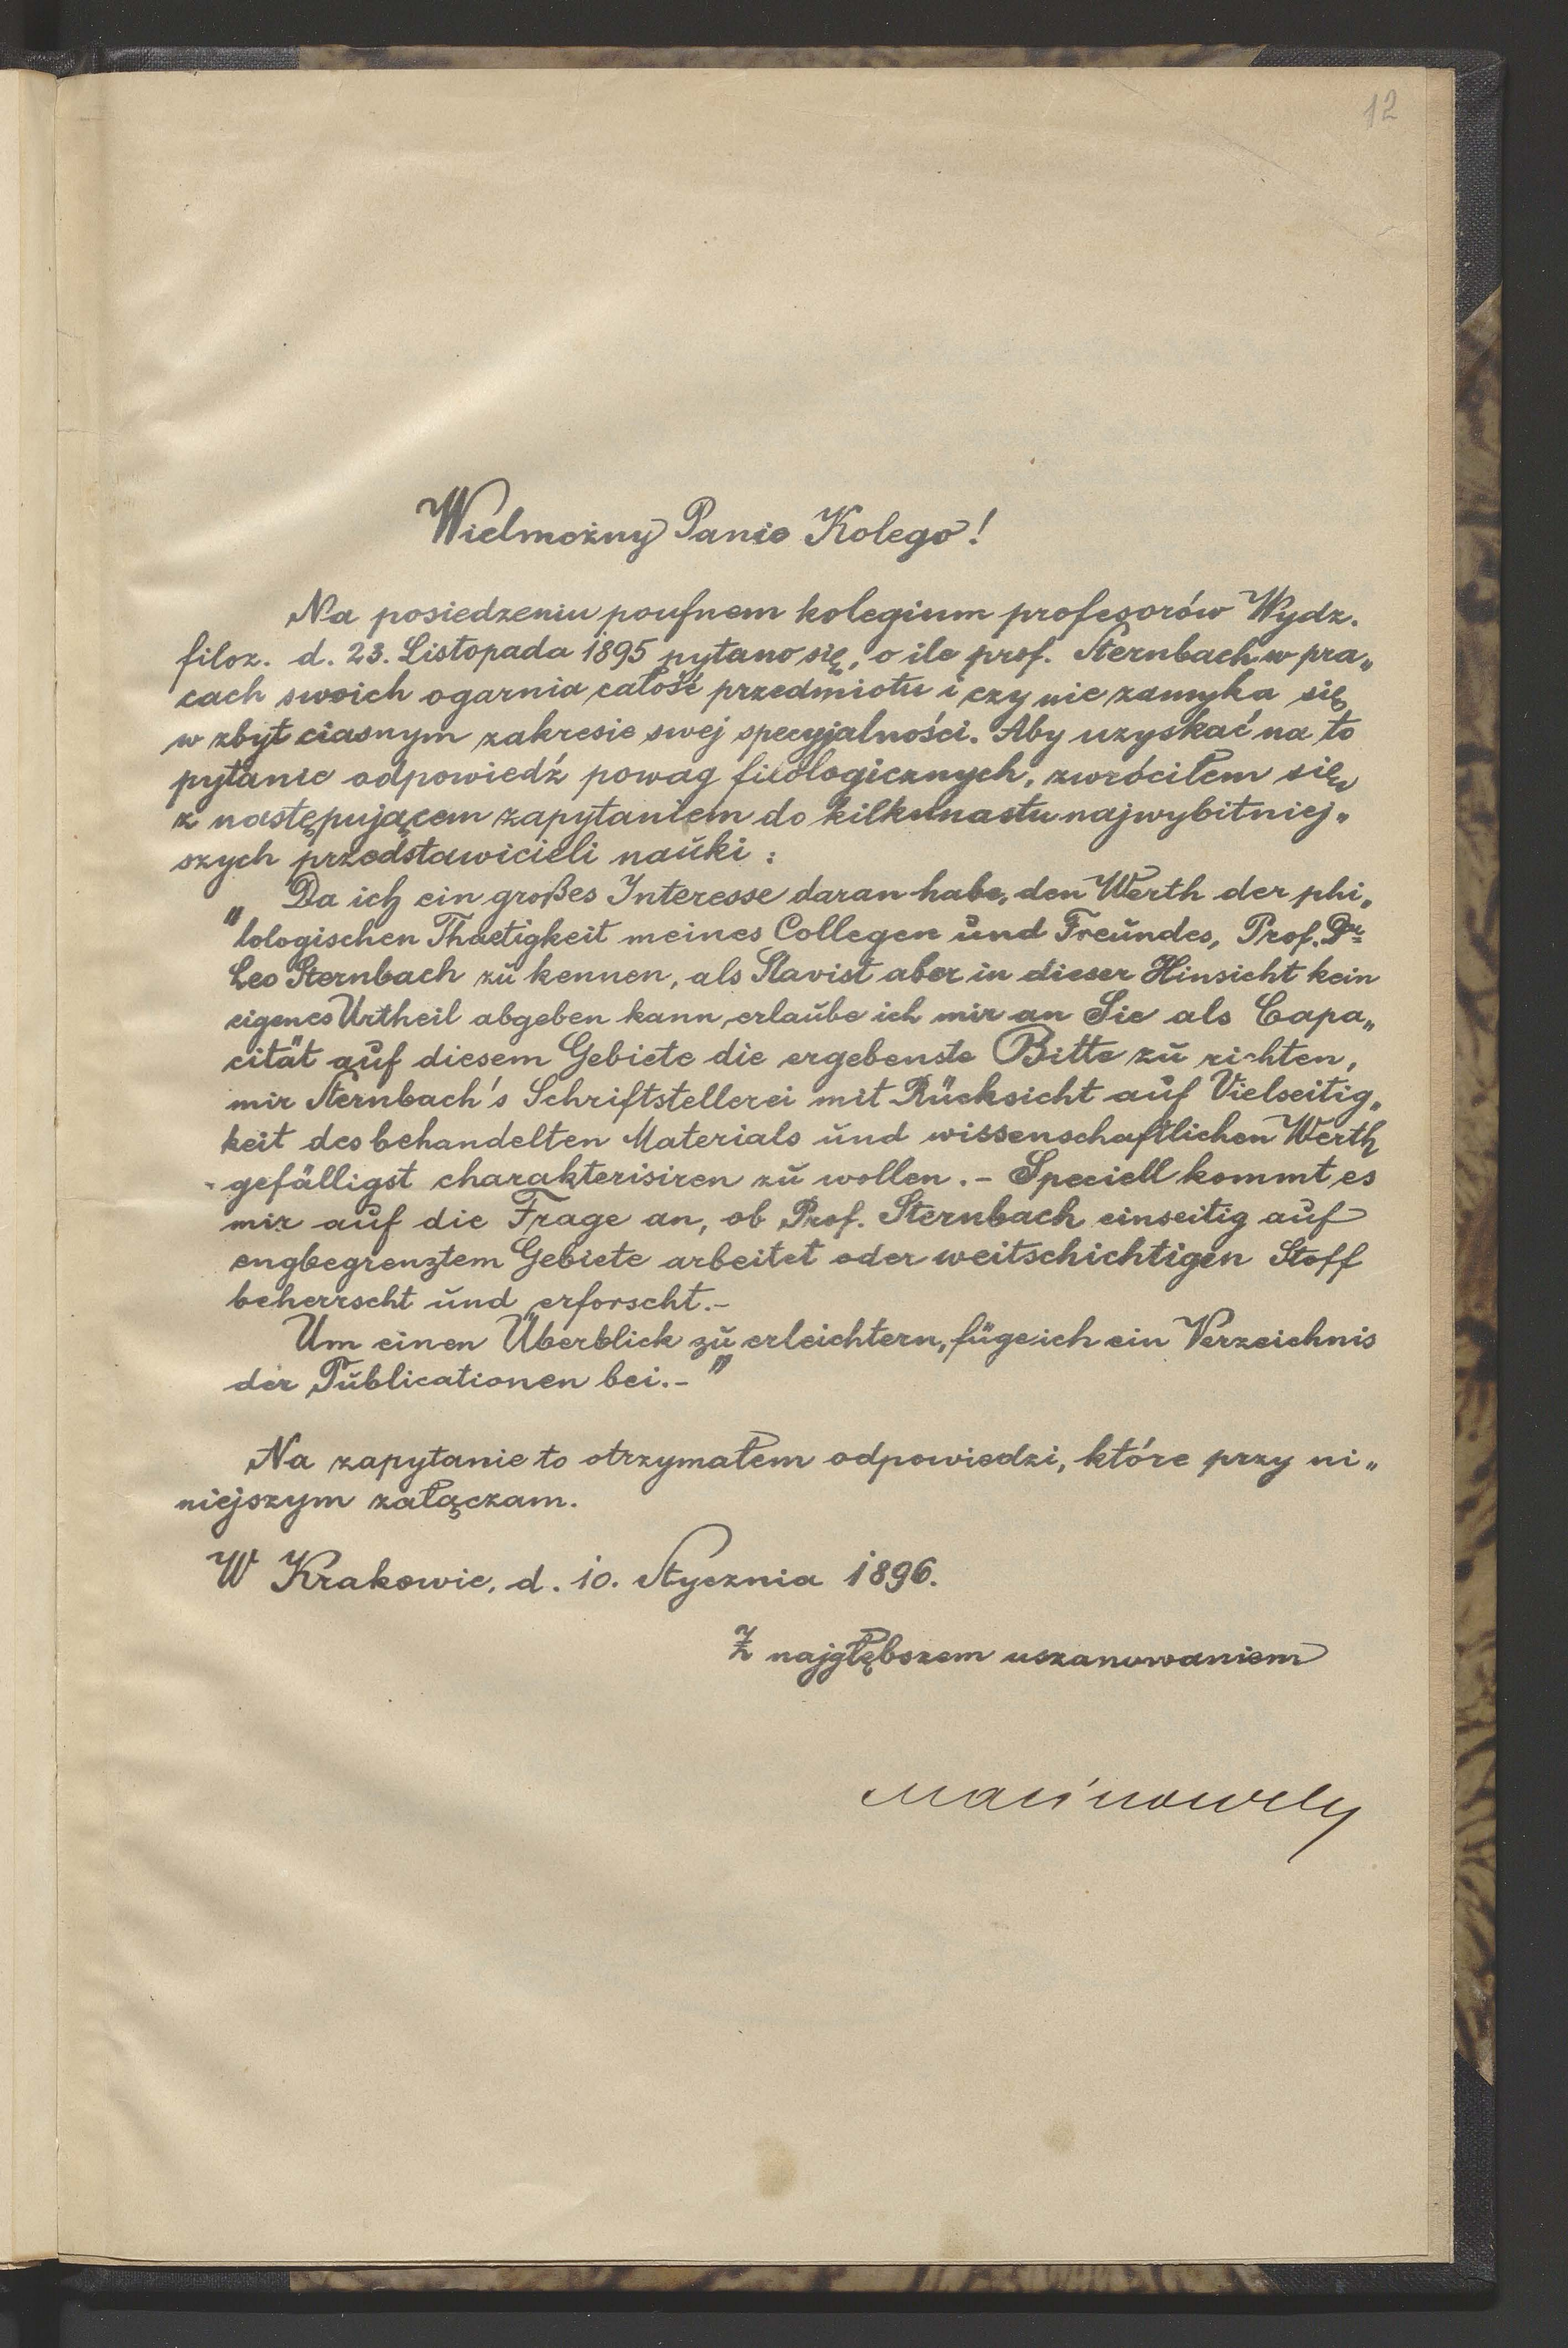 12
Wielmożny Panie Kolego!
Na posiedzeniu poufnem kolegium profesorów Wydz.
filoz. d. 23. Listopada 1895 pytano się, o ile prof. Sternbach w pra„
cach swoich ogarnia całość przedmiotu i czy nie zamyka się
w zbyt ciasnym zakresie swej specyjalności. Aby uzyskać na to
pytanie odpowiedź powag filologicznych, zwróciłem się
z następującem zapytaniem do kilkunastu najwybitniej„
szych przedstawicieli nauki:
„Da ich ein großes Interesse daran habe, den Werth der phi„
lologischen Thaetigkeit meines Collegen und Freundes, Prof. Dr
Leo Sternbach zu kennen, als Slavist aber in dieser Hinsicht kein
eigenes Urtheil abgeben kann, erlaube ich mir an Sie als Capa„
cität auf diesem Gebiete die ergebenste Bitte zu richten,
mir Sternbach's Schriftstellerei mit Rücksicht auf Vielseitig„
keit des behandelten Materials und wissenschaftlichen Werth
gefälligst charakterisiren zu wollen. - Speciell kommt es
mir auf die Frage an, ob Prof. Sternbach einseitig auf
engbegrenztem Gebiete arbeitet oder weitschichtigen Stoff
beherrscht und erforscht. -
Um einen Überblick zu erleichtern, füge ich ein Verzeichnis
der Publicationen bei. - "
Na zapytanie to otrzymałem odpowiedzi, które przy ni„
niejszym załączam.
W Krakowie, d. 10. Stycznia 1896.
Z najgłębszem uszanowaniem
Malinowski